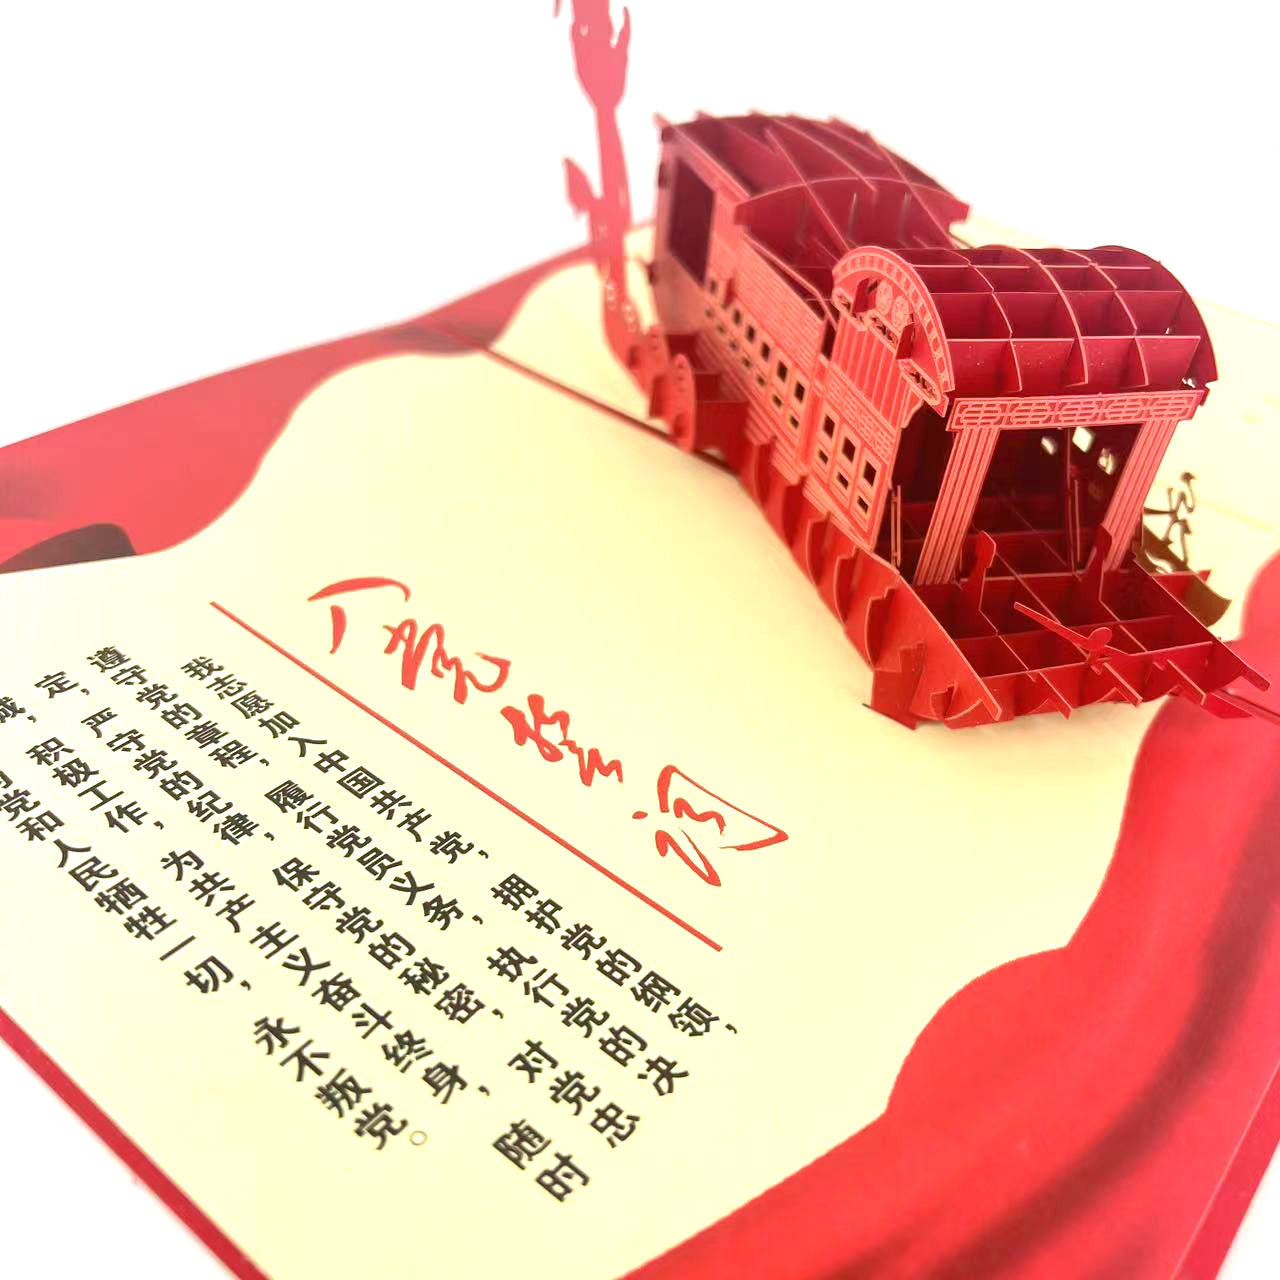 入党誓词
我志愿加入中国共产党，拥护党的纲领，
遵守党的章程，履行党员义务，执行党的决
定，严守党的纪律，保守党的秘密，对党忠
诚，积极工作，为共产主义奋斗终身，随时
党和人民牺牲一切，永不叛党。